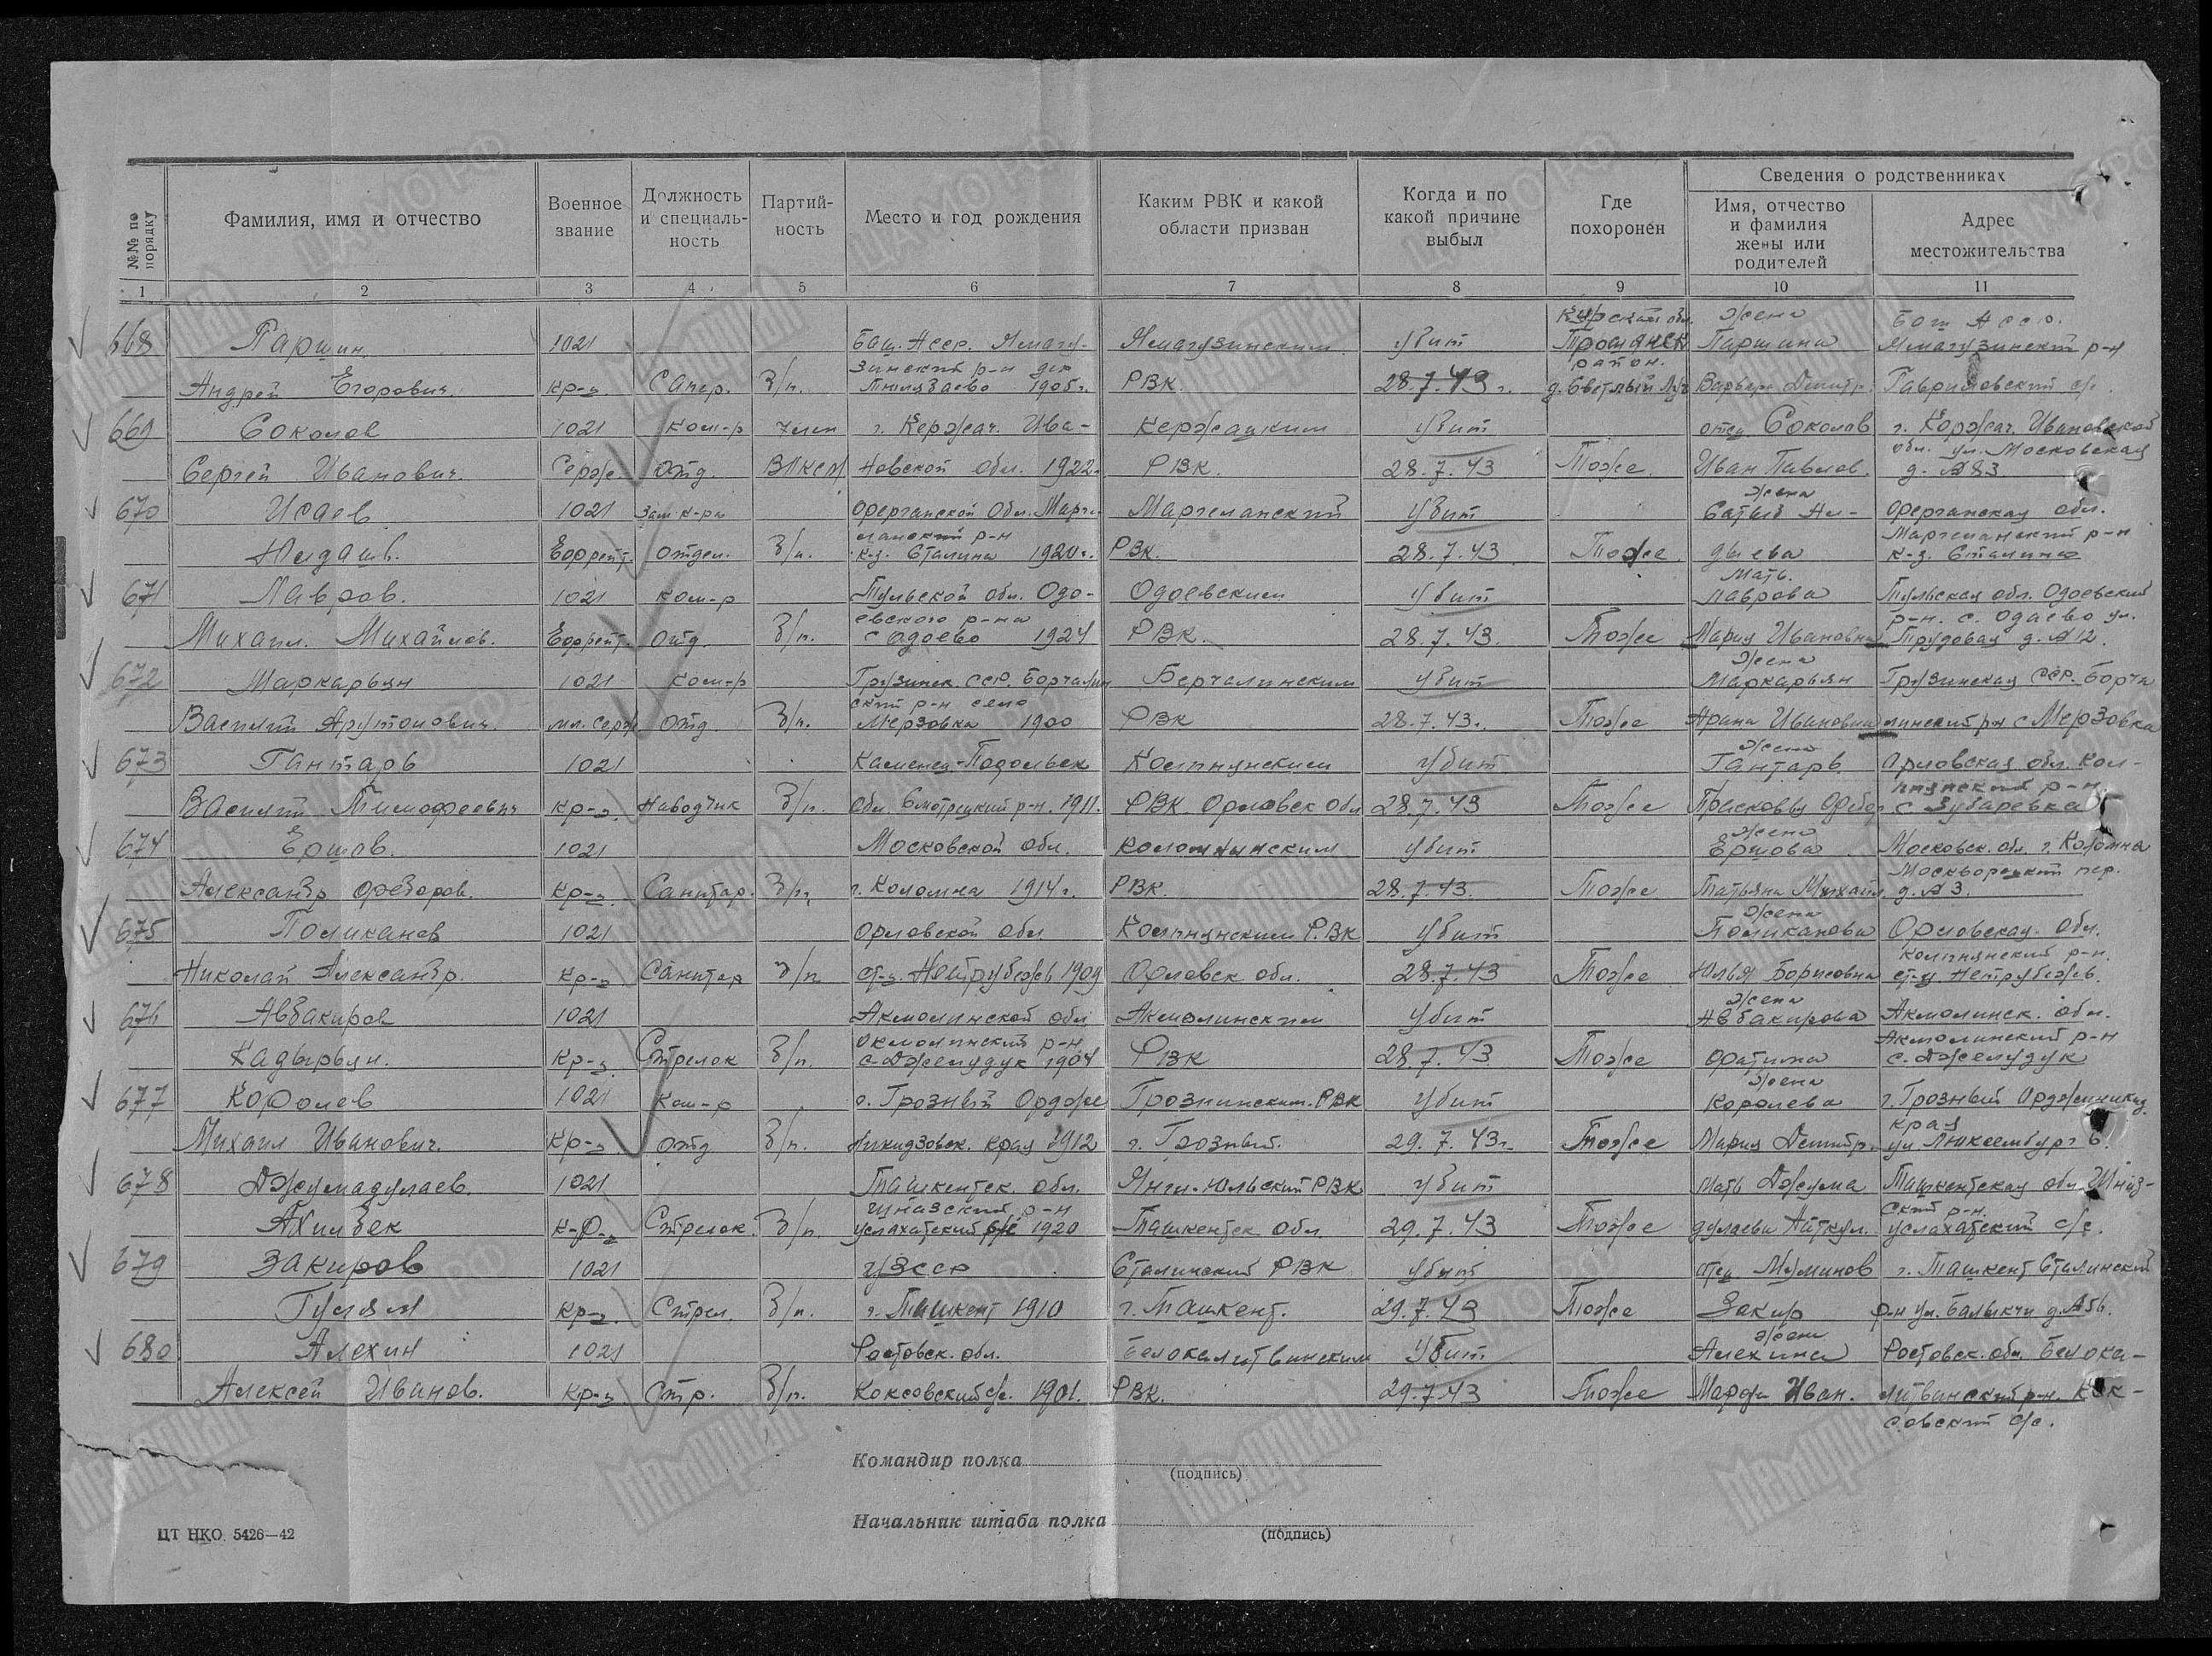 №№ по порядку
Фамилия, имя и отчество
Военное звание
Должность и специаль-ность
Партий-ность
Место и год рождения
Каким РВК и какой области призван
Когда и по какой причине выбыл
Где похоронен
Сведения о родственниках
Имя, отчество и фамилия жены или родителей
Адрес местожительства
1 2 3 4 5 6 7 8 9 10 11
Курской обл. жена Баш Асср.
668 Паршин 1021 Баш. Асср. Ямагу- Ямагузинским убит Томаровск Паршина Ямагузинский р-н
зинский р-н дер район.
Андрей Егорович. кр-ц. Сапер. Б/п. 1905г. РВК. 28.7.43г. д. Светлый Луч Варвара Дмитр. Гавриловский с/с
669 Соколов 1021 Ком-р член г. Кержач. Ива- Кержацким убит отец Соколов г. Коржач. Ивановской
обл. ул. Московская
Сергей Иванович. Серж. отд. ВЛКСМ новской обл. 1922г. РВК. 28.7.43 Тоже. Иван Павлов. д. №83
жена
670 Исаев 1021 Зам к-ра Ферганской Обл. Марги- Маргеланский убит Ферганская обл.
ланский р-н Маргеланский р-н
Юлдаш. Ефрейт. отдел. Б/п. к-з. Сталина 1920г. РВК. 28.7.43 Тоже дыева к-з. Сталина
Мать.
671 Лавров. 1021 ком-р Тульской обл. Одо- Одоевским убит Лаврова Тульская обл. Одоевский
евского р-на р-н. с. Одаево ул.
Михаил. Михайлов. Ефрейт. отд. Б/п. с Одоево 1924 РВК. 28.7.43. Тоже Мария Ивановна Трудовая д. №12.
Жена
672 Маркарьян 1021 Ком-р Грузинск. сср. Борчалин Берчалинским убит Маркарьян Грузинская сср. Борча
ский р-н село
Василий Арутюнович. мл. серж отд Б/п. Мерзовка 1900 РВК 28.7.43г. Тоже Арана Ивановна линский рн с Мерзовка
жена
673 Гантарь 1021 Каменец-Подольск Колпнунским убит Гантарь Орловская обл. Кол-
пнянский р-н
Василий Тимофеевич кр-ц. Наводчик Б/п. обл. Смотрецкий р-н. 1911. РВК. Орловск Обл 28.7.43 Тоже Прасковья Федор с. Зубаревка
жена
674 Ершов. 1021 Московской обл. Коломнинским убит Ершова Московск. обл г. Коломна
Москворецкий пер.
Александр Федоров. кр-ц. Санитар. Б/п. г. Коломна 1914г. РВК. 28.7.43. Тоже Татьяна Михайл. д. №3.
жена
675 Поликанов 1021 Орловской обл Колпнунским РВК убит Поликанова Орловская. Обл.
колпнянский р-н.
Николай Александр. кр-ц Санитар Б/п 1909 Орловск обл. 28.7.43 Тоже Юлья Борисовна ст-ц. Нетрубежь.
жена
676 Авбакиров 1021 Акмолинской обл Акмолинским убит Авбакирова Акмолинск. обл.
Окмолинский р-н Акмолинский р-н
Кадырьян. кр-ц. Стрелок Б/п. с. Джемудук 1904 РВК 28.7.43 Тоже Фатима с. Джемудук
Жена
677 Королев 1021 Ком-р г. Грозный Ордже Грознинским. РВК убит Королева г. Грозный Орджиникид.
края
Михаил Иванович. кр-ц отд Б/п. никидзовск. края 1912 г. Грозный. 29.7.43г. Тоже Мария Дмитр. ул. Люксембург 6.
678 Джумадулаев. 1021 Ташкентск. обл. Янги-Юльский РВК убит Мать Джума Ташкентская обл Шназ-
Чиназский р-н ский р-н.
Ахилбек к-р-ц Стрелок. Б/п. услахатский с/с 1920 Ташкентск Обл 29.7.43 Тоже дулаева Айткул. услахатский с/с.
679 Закиров 1021 УзССР Сталинский РВК убит отец Муминов г. Ташкент Сталинский
Гулям кр-ц. Стрел. Б/п. г. Ташкент 1910 г. Ташкент. 29.7.43 Тоже Закир р-н ул. Балыкчи д. №56.
жена
680 Алехин 1021 Ростовск. обл. Белокалитвинским убит Алехина Ростовск. обл. Белока-
Алексей Иванов. кр-ц Стр. Б/п. Коксовский с/с. 1901. РВК. 29.7.43 Тоже Марфа Иван. литвинский р-н. Кок-
совский с/с.
Командир полка
(подпись)
Начальник штаба полка
(подпись)
ЦТ НКО 5426—42